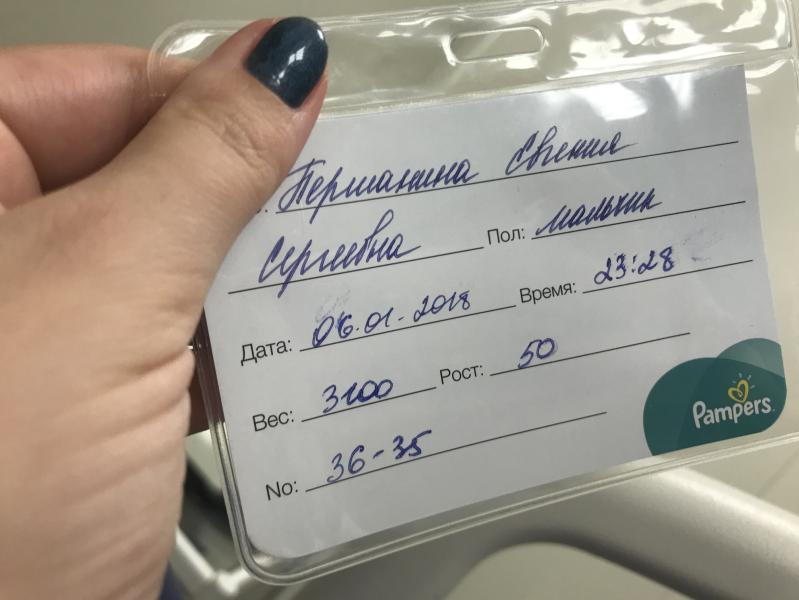 Першанина Евгения
Сергеевна Пол: мальчик
Дата: 06.01.2018 Время: 23:28
Вес: 3100 Рост: 50
No: 36-35
Pampers